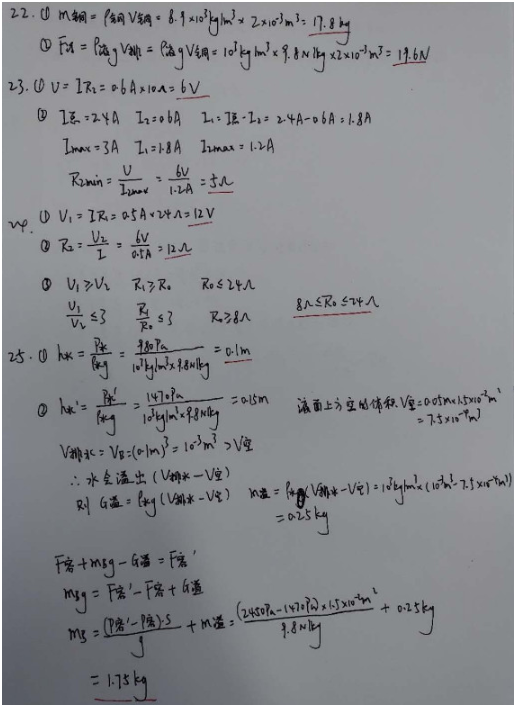 22. ① m铜 = ρ铜V铜 = 8.9×10³kg/m³×2×10⁻³m³ = 17.8kg
② F浮 = ρ液gV排 = ρ液gV铜 = 10³kg/m³×9.8N/kg×2×10⁻³m³ = 19.6N
23. ① U = IR₂ = 0.6A×10Ω = 6V
② I总 = 2.4A I₂ = 0.6A I₁ = I总 - I₂ = 2.4A - 0.6A = 1.8A
Imax = 3A I₁ = 1.8A I₂max = 1.2A
R₂min = U/I₂max = 6V/1.2A = 5Ω
24. ① U₁ = IR₁ = 0.5A×24Ω = 12V
② R₂ = U₂/I = 6V/0.5A = 12Ω
③ U₁ ≥ U₂ R₁ ≥ R₀ R₀ ≤ 24Ω
U₁/U₂ ≤ 3 R₁/R₀ ≤ 3 R₀ ≥ 8Ω 8Ω ≤ R₀ ≤ 24Ω
25. ① h水 = P水/ρ水g = 980Pa/10³kg/m³×9.8N/kg = 0.1m
② h水' = P水'/ρ水g = 1470Pa/10³kg/m³×9.8N/kg = 0.15m 液面上方空的体积 V空 = 0.05m×1.5×10⁻²m²
= 7.5×10⁻⁴m³
V排水 = VB = (0.1m)³ = 10⁻³m³ > V空
∴ 水会溢出 (V排水 - V空)
则 G溢 = ρ水g (V排水 - V空) m溢 = ρ水(V排水 - V空) = 10³kg/m³×(10⁻³m³ - 7.5×10⁻⁴m³)
= 0.25kg
F容 + mBg - G溢 = F容'
mBg = F容' - F容 + G溢
mB = (P容' - P容)·S/g + m溢 = (2450Pa - 1470Pa)×1.5×10⁻²m²/9.8N/kg + 0.25kg
= 1.75kg